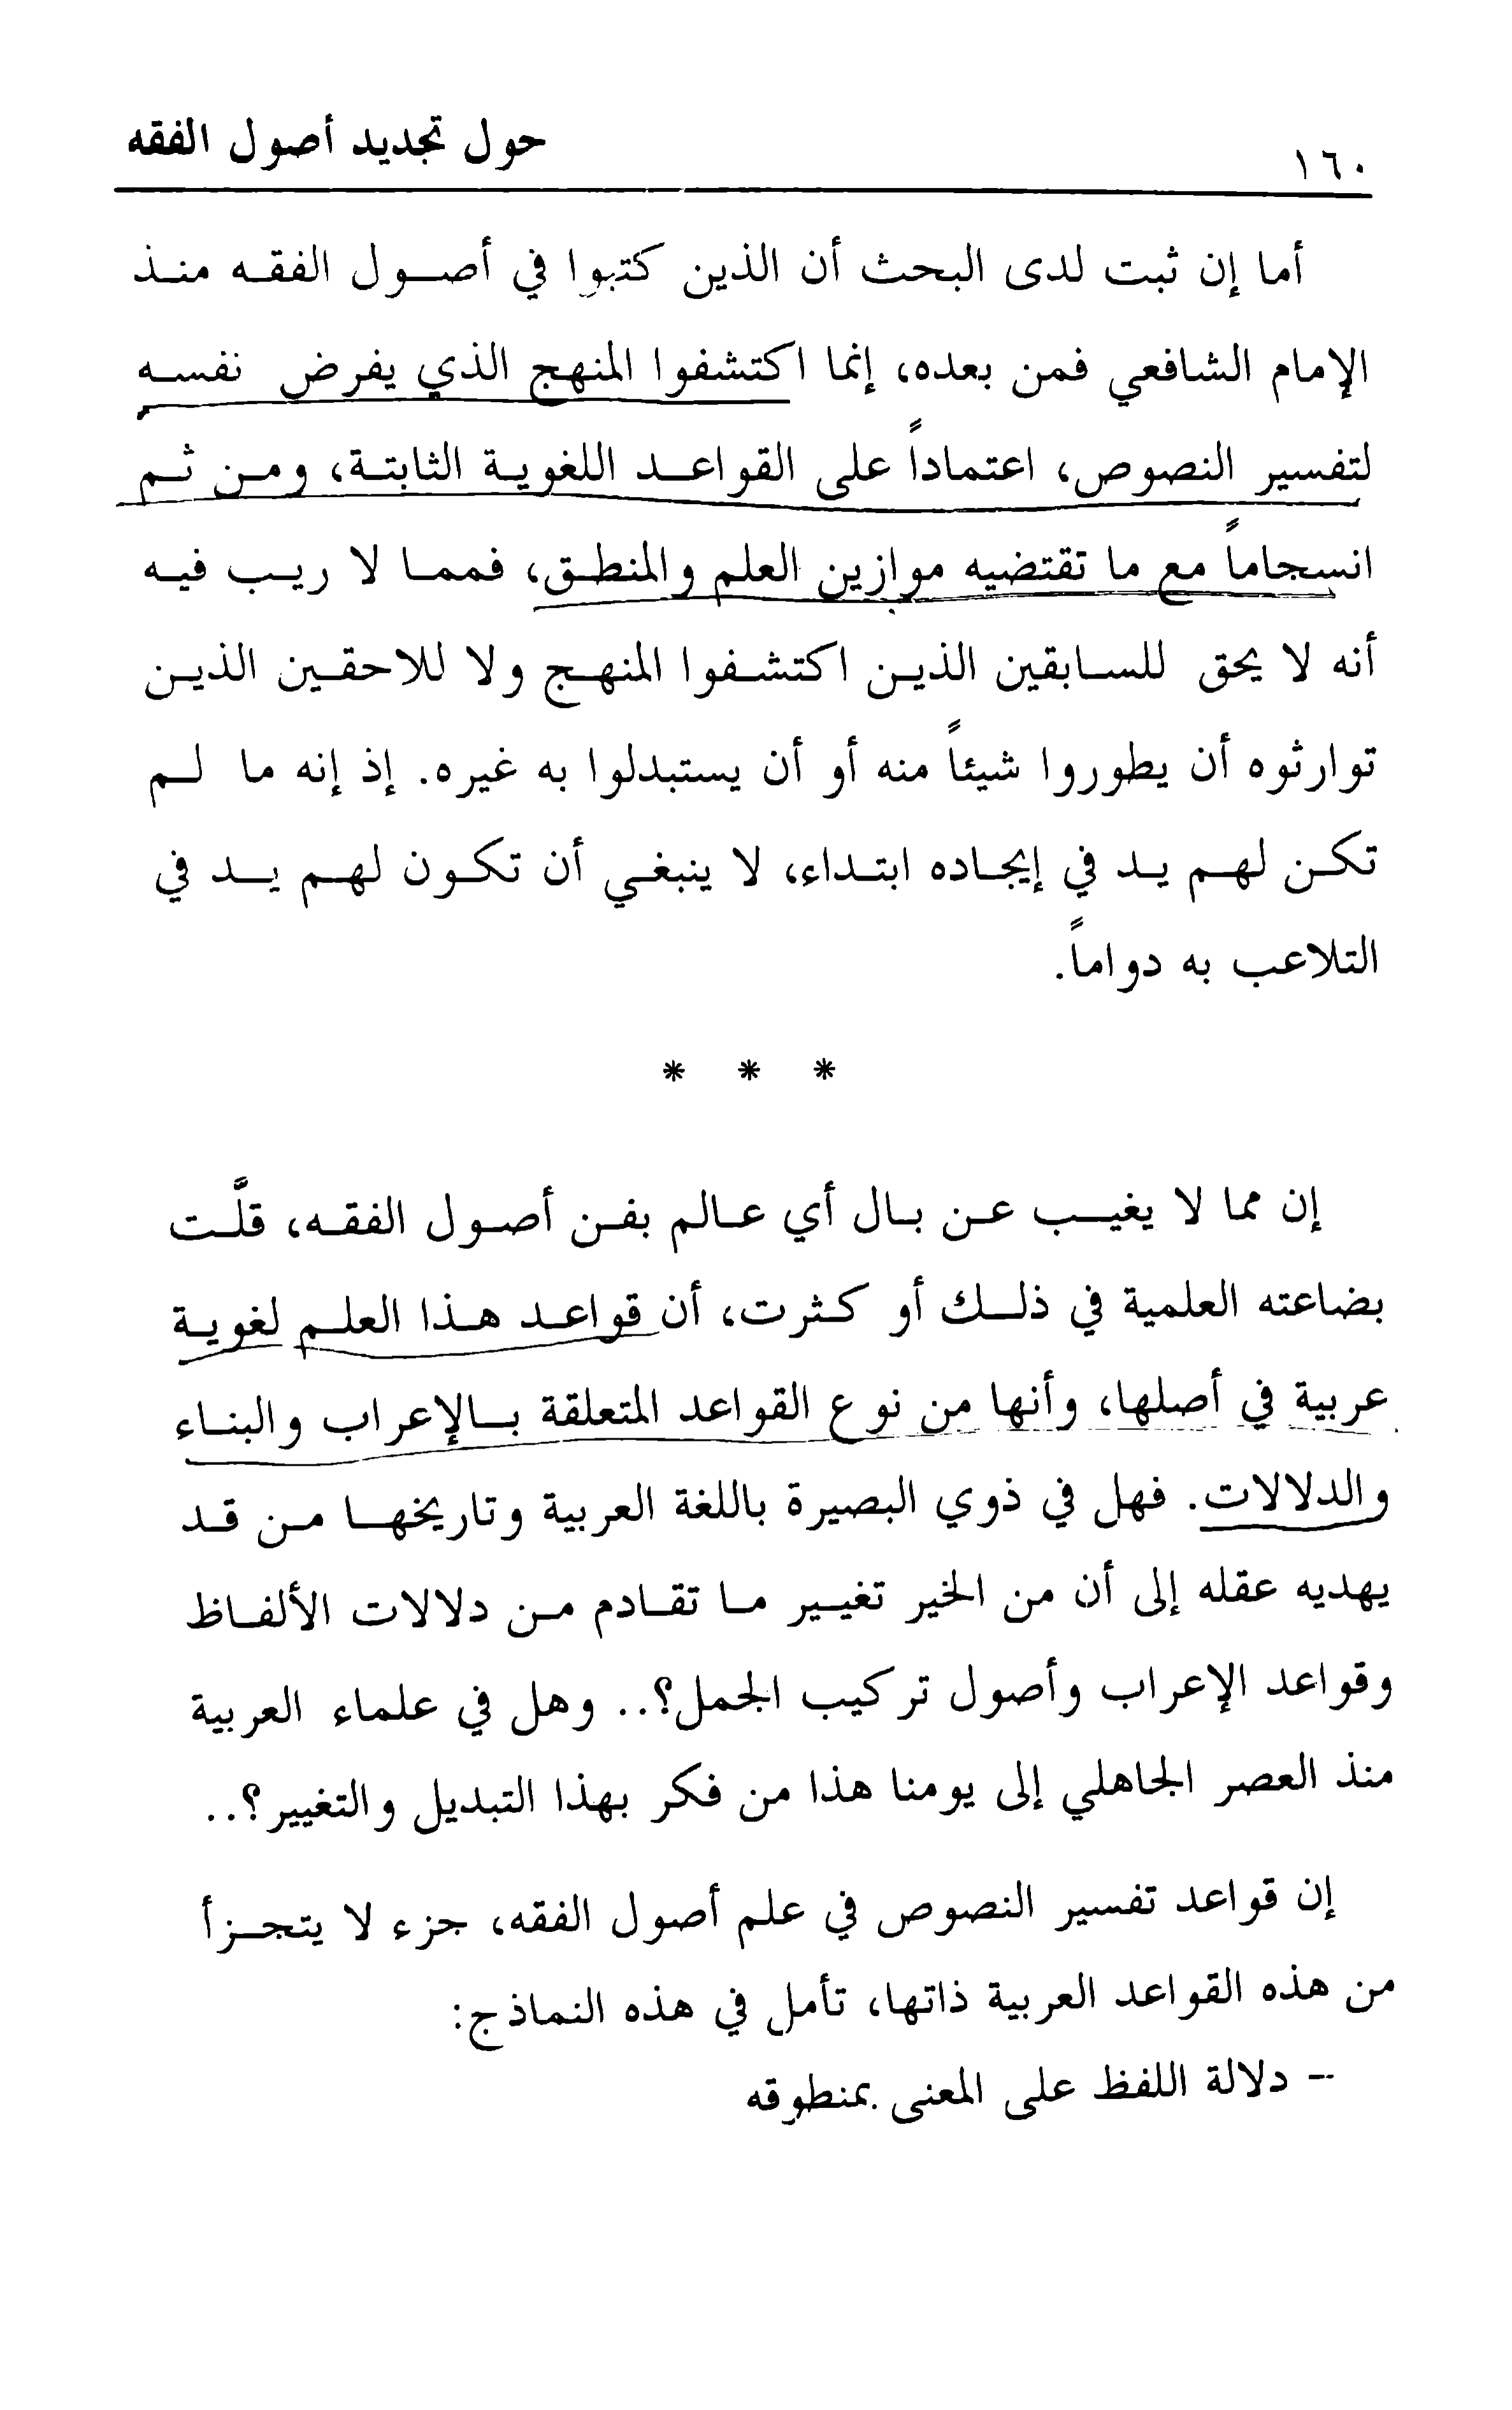 ١٦٠
حول تجديد أصول الفقه
أما إن ثبت لدى البحث أن الذين كتبوا في أصول الفقه منذ
الإمام الشافعي فمن بعده، إنما اكتشفوا المنهج الذي يفرض نفسه
لتفسير النصوص، اعتماداً على القواعد اللغوية الثابتة، ومن ثم
انسجاماً مع ما تقتضيه موازين العلم والمنطق، فمما لا ريب فيه
أنه لا يحق للسابقين الذين اكتشفوا المنهج ولا للاحقين الذين
توارثوه أن يطوروا شيئاً منه أو أن يستبدلوا به غيره. إذ إنه ما لم
تكن لهم يد في إيجاده ابتداء، لا ينبغي أن تكون لهم يد في
التلاعب به دواماً.
* * *
إن مما لا يغيب عن بال أي عالم بفن أصول الفقه، قلَّت
بضاعته العلمية في ذلك أو كثرت، أن قواعد هذا العلم لغوية
عربية في أصلها، وأنها من نوع القواعد المتعلقة بالإعراب والبناء
والدلالات. فهل في ذوي البصيرة باللغة العربية وتاريخها من قد
يهديه عقله إلى أن من الخير تغيير ما تقادم من دلالات الألفاظ
وقواعد الإعراب وأصول تركيب الجمل؟.. وهل في علماء العربية
منذ العصر الجاهلي إلى يومنا هذا من فكر بهذا التبديل والتغيير؟..
إن قواعد تفسير النصوص في علم أصول الفقه، جزء لا يتجزأ
من هذه القواعد العربية ذاتها، تأمل في هذه النماذج:
- دلالة اللفظ على المعنى بمنطوقه